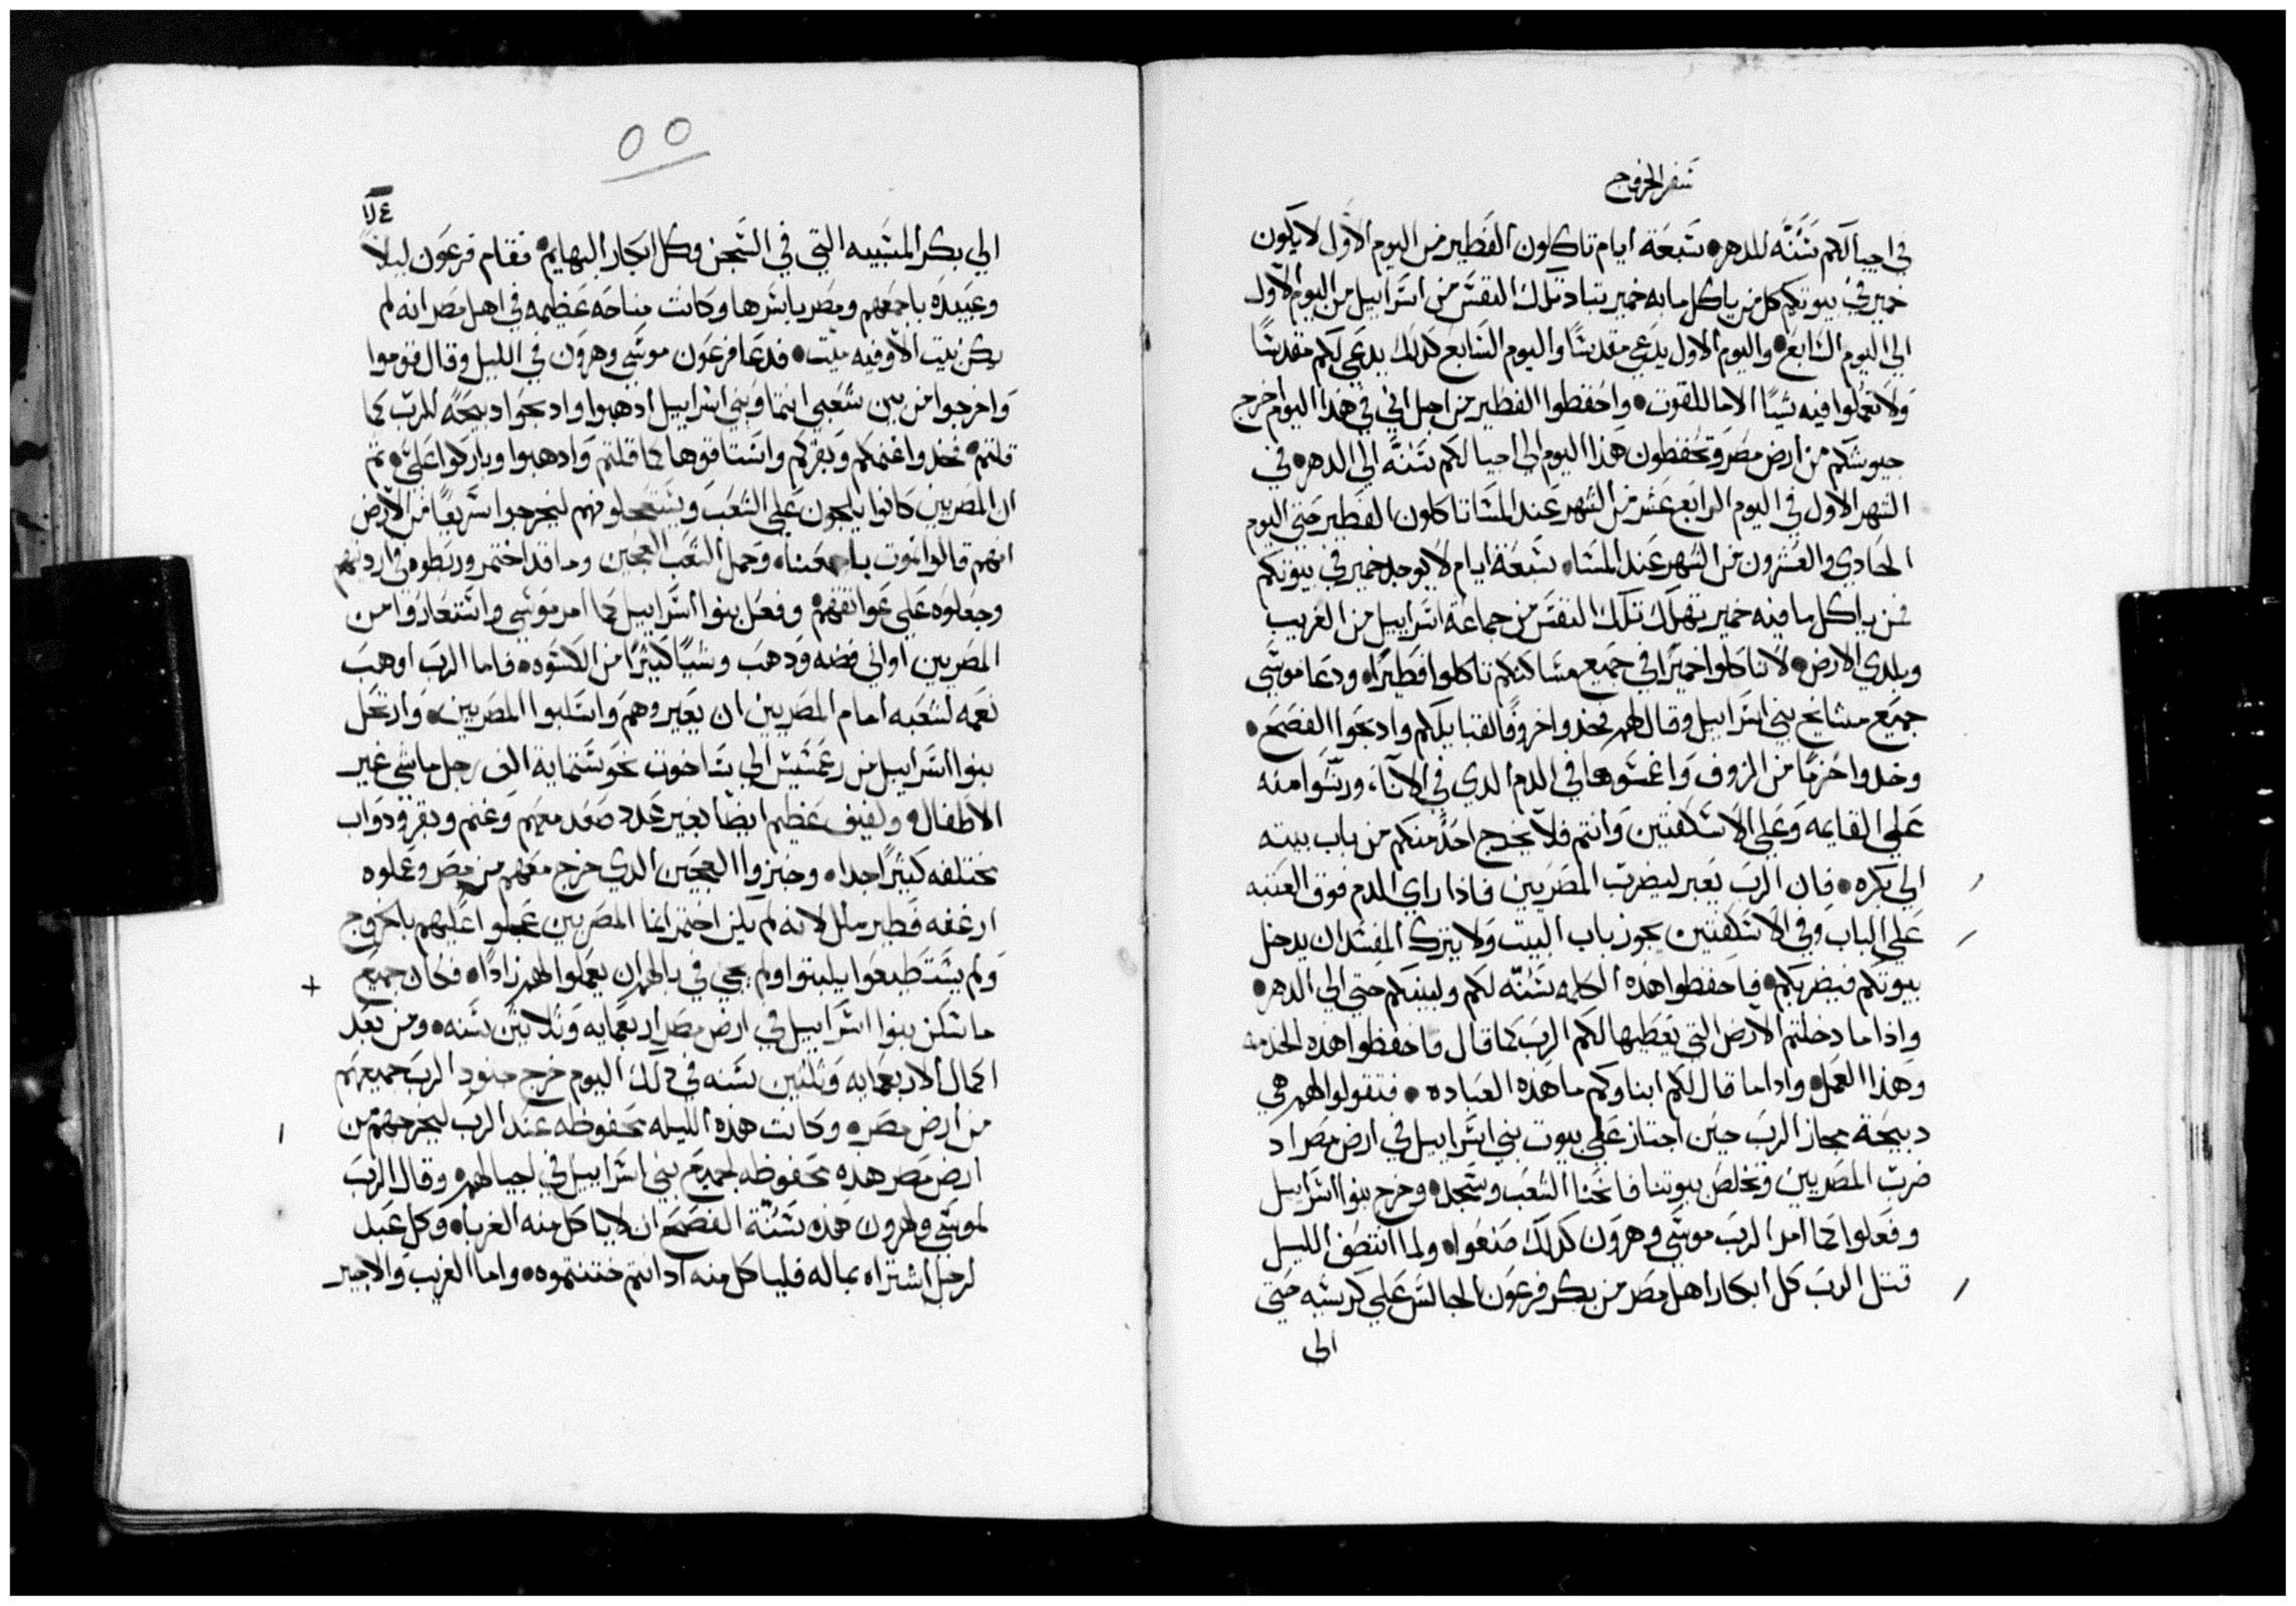 سفر الخروج
في اجيالكم سُنَّه للدهر• سبعة ايام تاكلون الفطير من اليوم الاول لا يكون
خمير في بيوتكم كل من ياكل ما به خمير تباد تلك النفس من اسراييل من اليوم الاول
الي اليوم السابع• واليوم الاول يدعي مقدسًا واليوم السابع كذلك يدعي لكم مقدسًا
ولا تعملوا فيه شيًا الا ما للقوت• واحفظوا الفطير من اجل اني في هذا اليوم اخرج
جيوشكم من ارض مصر وتحفظون هذا اليوم الي اجيالكم سُنَّه الي الدهر• في
الشهر الاول في اليوم الرابع عشر من الشهر عند المسا تاكلون الفطير حتي اليوم
الحادي والعشرون من الشهر عند المسا• سبعة ايام لا يوجد خمير في بيوتكم
فمن ياكل ما فيه خمير تهلك تلك النفس من جماعة اسراييل من الغريب
وبلدي الارض• لا تاكلوا خميرًا في جميع مساكنكم تاكلوا فطيرًا• ودعا موسي
جميع مشايخ بني اسراييل وقال لهم خدوا خروفًا لقبايلكم وادبحوا الفصح•
وخدوا حُزمًا من الزوف واغسوها في الدم الدي في الاناء، ورشوا منه
علي القايمه وعلي الاسكفتين وانتم فلا يخرج احد منكم من باب بيته
الي بكره• فان الرب يعبر ليضرب المصريين فاذا راي الدم فوق العتبه
علي الباب وفي الاسكفتين يجوز باب البيت ولا يترك المفسد ان يدخل
بيوتكم فيضربكم• فاحفظوا هذه الكلمه سُنّه لكم ولبنيكم حتي الي الدهر•
واذا ما دخلتم الارض التي يعطيها لكم الرب كما قال فاحفظوا هذه الخدمه
وهذا العمل• واداما قال لكم ابناوكم ما هذه العباده• فتقولوا لهم هي
دبيحة مجاز الرب حين اجتاز علي بيوت بني اسراييل في ارض مصر اد
ضرب المصريين وتخلص بيوتنا فانحنا الشعب وسجد• وخرج بنوا اسراييل
وفعلوا كما امر الرب موسي وهرون كدلك صنعوا• ولما انتصف الليل
قتل الرب كل ابكار اهل مصر من بكر فرعون الجالس علي كرسيه حتي
الي
٥٥
الي بكر المسبيه التي في السجن وكل ابكار البهايم• فقام فرعون ليلًا
وعبيده باجمعهم ومصر باسرها وكانت مناحه عظيمه في اهل مصر انه لم
يكن بيت الا وفيه ميت• فدعا فرعون موسي وهرون في الليل وقال قوموا
واخرجوا من بين شعبي انتما وبني اسراييل ادهبوا وادبحوا دبيحة للرب كما
قلتم• فخدوا غنمكم وبقركم واستاقوها كما قلتم وادهبوا وباركوا علي• ثم
ان المصريين كانوا يلجون علي الشعب ويستعجلوفهم ليخرجوا سريعًا من الارض
انهم قالوا نموت باجمعنا• وحمل الشعب العجين وما قد اختمر وربطوه في ارديتهم
وجعلوه علي عواتقهم• وفعل بنوا اسراييل كما امر موسي واستعاروا من
المصريين اواني فضه ودهب وشيًا كثيرًا من الكسوه• فاما الرب اوهب
نعمه لشعبه امام المصريين ان يعيروهم واستلبوا المصريين• وارتحل
بنوا اسراييل من رعمسيس الي ساخوت نحو ستمايه الف رجل ماشي غير
الاطفال• ولفيف عظيم ايضا بغير عدد صعد معهم وغنم وبقر ودواب
مختلفه كثيرًا جدا• وخبزوا العجين الدي خرج معهم من مصر وعملوه
ارغفه فطير ملل لانه لم يكن اختمر انما المصريين عجلوا عليهم بالخروج
ولم يستطيعوا يلبتوا ولم يجي في بالهم ان يعملوا لهم زادًا• فكان جميع
ما سكن بنوا اسراييل في ارض مصر اربعمايه وثلاثين سنه• ومن بعد
اكمال الاربعمايه وثلثين سنه في دلك اليوم خرج جنود الرب جميعهم
من ارض مصر• وكانت هذه الليله محفوظه عند الرب ليخرجهم من
ارض مصر هذه محفوظه لجميع بني اسراييل في اجيالهم• وقال الرب
لموسي وهرون هذه سُنّة الفصح ان لا ياكل منه الغربا• وكل عبد
لرجل اشتراه بماله فلياكل منه ادا انتم ختنتموه• واما الغريب والاجير